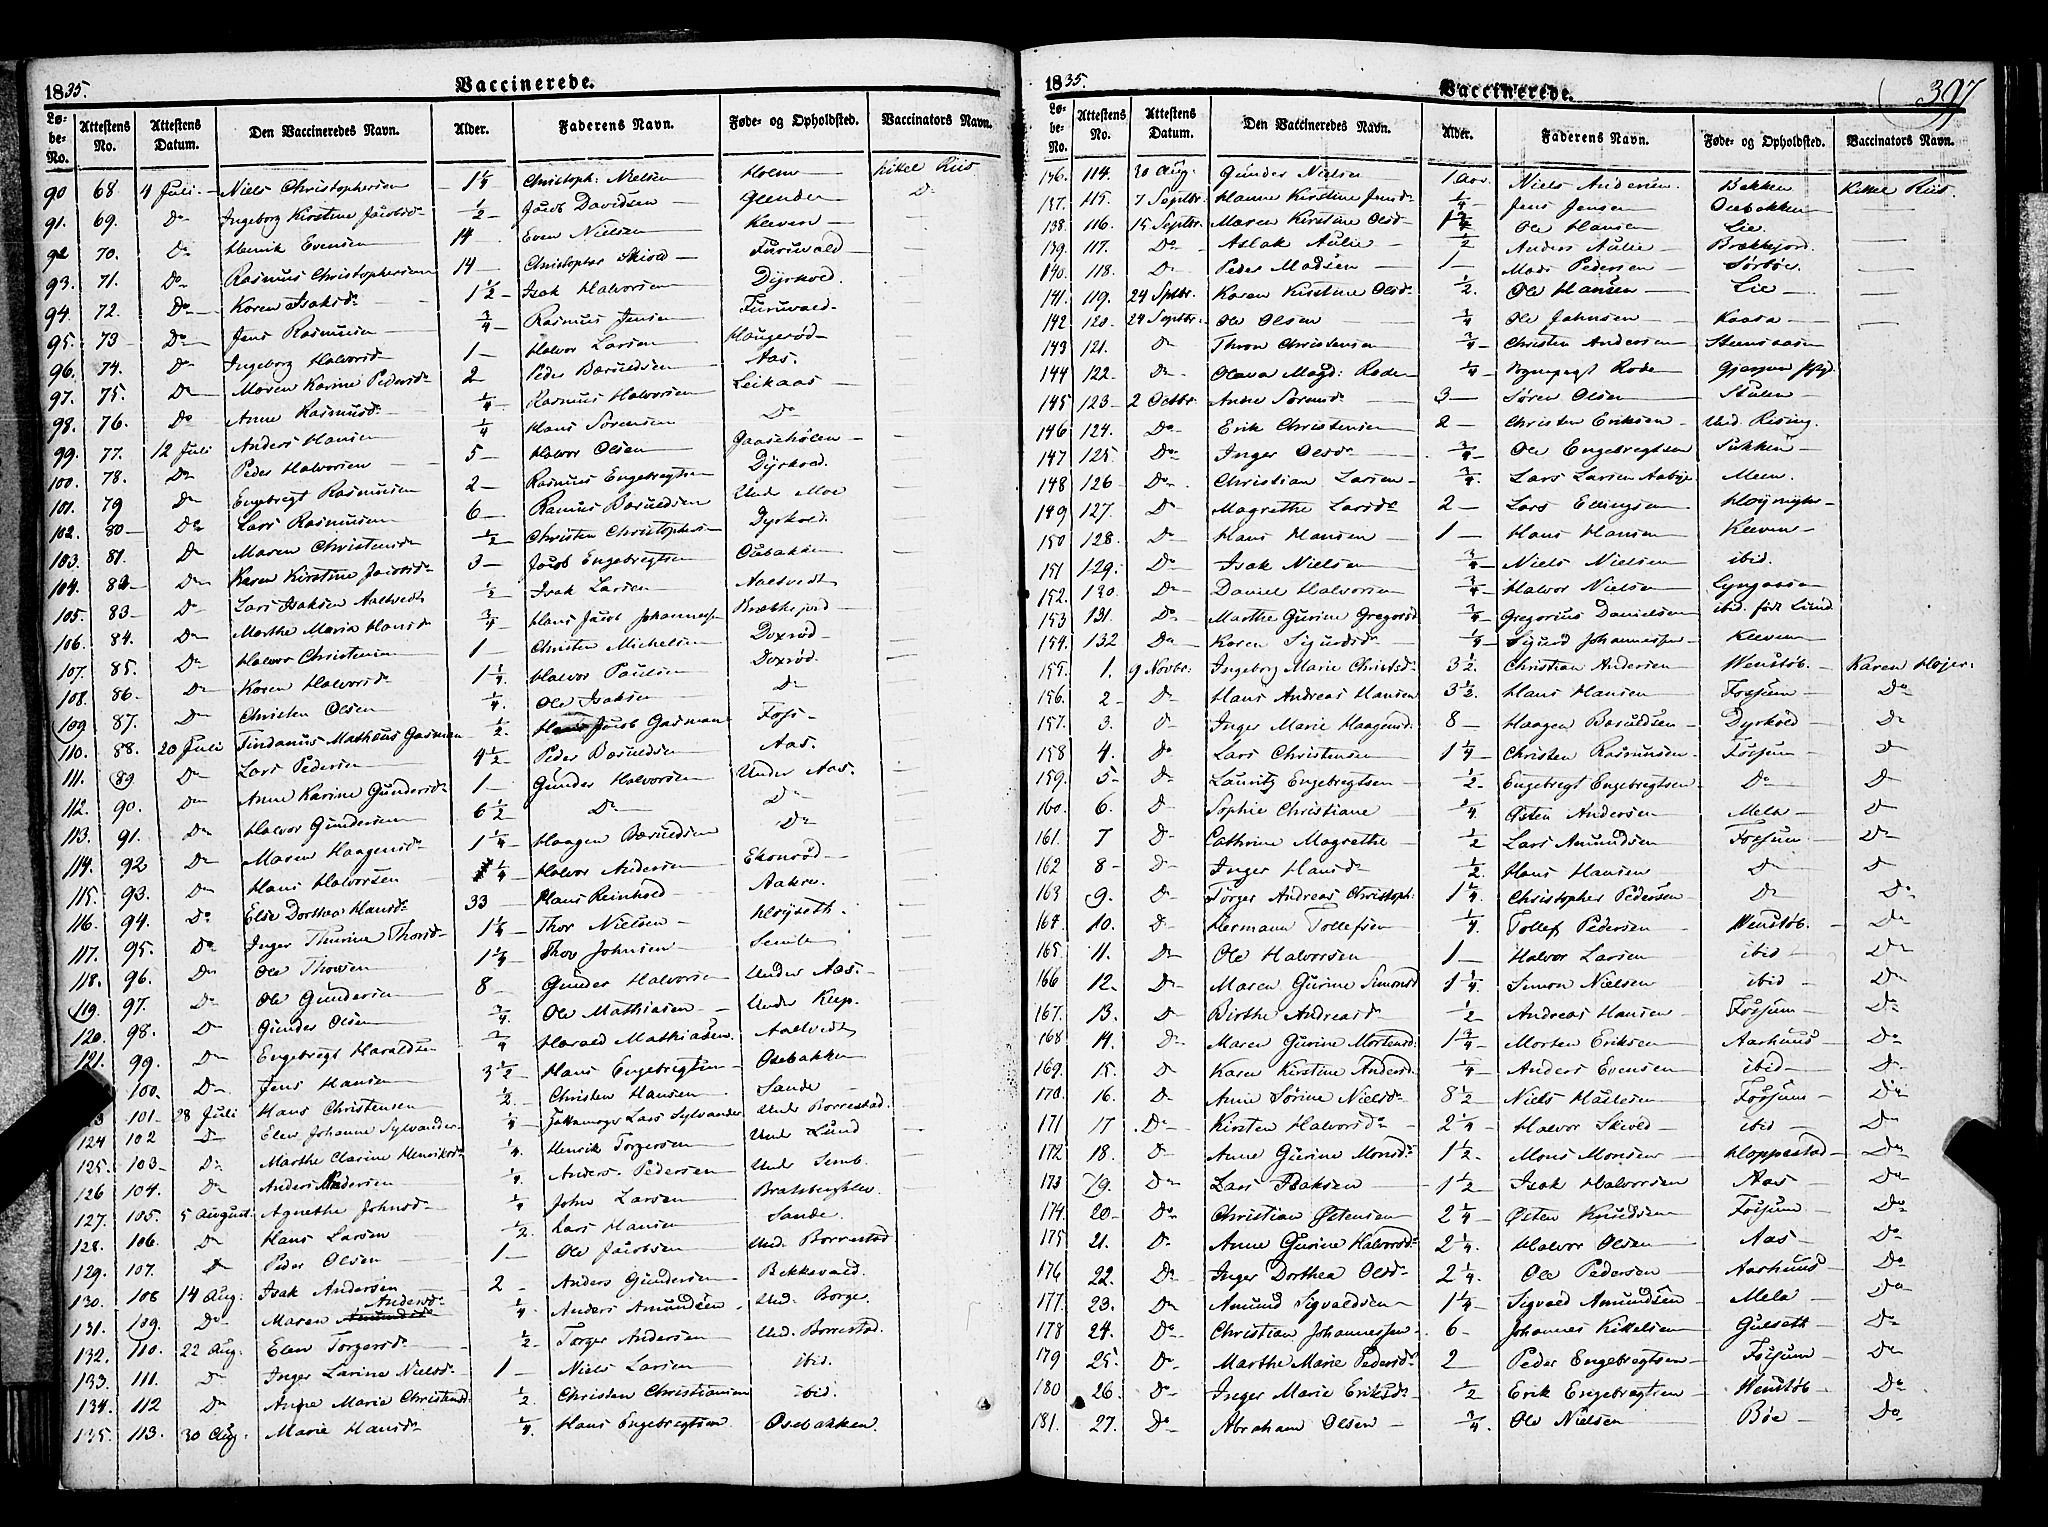 1835.
Vaccinerede.
Løbe-No. Attestens No. Attestens Datum. Den Vaccineredes Navn. Alder. Faderens Navn. Føde- og Opholdsted. Vaccinators Navn.
90 68 4 Juli Niels Christophersen 1 1/4 Christoph: Nielsen Holme Kittel Riis
91. 69. Do Ingeborg Kirstine Jacobsd 1/2 Jacob Davidsen Do
92 70. Do Henrik Evensen 14 Even Nielsen Kleven
93. 71. Do Rasmus Christophersen 14 Christopher Skivold Furuvald
94. 72. Do Karen Isaksd 1 1/2 Isak Halvorsen Dyrkoed.
95. 73 Do Jens Rasmusen 3/4 Rasmus Jensen Furuvald
96. 74. Do Ingeborg Halvorsd 1 Halvor Larsen Haugerød
97. 75. Do Maren Karine Pedersd 2 Peder Baruldsen Aas.
98. 76. Do Anne Rasmusd 1/4 Rasmus Halvorsen Leikaas
99. 77. 12 Juli Anders Hansen 1/4 Hans Sørensen Do
100. 78. Do Peder Halvorsen 5 Halvor Olsen Gaasehølen
101. 79 Do Engebregt Rasmusen 2 Rasmus Engebregtsen Dyrkoed.
102. 80 Do Lars Rasmusen 6 Rasmus Baruldsen Und Moe
103. 81. Do Maren Christensd 1/2 Christen Christophers Dyrkoed.
104. 82 Do Karen Kirstine Jacobsd 3 Jacob Engebregtsen Osebakken
105. 83 Do Lars Isaksen Aaltvedt 1/2 Isak Larsen Aaltvedt
106. 84. Do Marthe Maria Hansd 3/4 Hans Jacob Johannes Brækkejord
107. 85. Do Halvor Christensen 1 Christen Michelsen Doxrød
108. 86. Do Karen Halvorsd 1 1/4 Halvor Paulsen Doxrød.
109 87. Do Christen Olsen 1/4 Ole Isaksen Do
110. 88. 20 Juli Findanus Mathæus Gasman 1/2 Hans Jacob Gasman Foss
111. 89 Do Lars Pedersen 4 1/2 Peder Baruldsen Aas.
112. 90. Do Anne Karine Gundersd 1 Gunder Halvorsen Under Aas.
113. 91. Do Halvor Gundersen 6 1/2 Do Do
114. 92 Do Maren Haagensd 1 1/4 Haagen Baruldsen Do
115. 93. Do Hans Halvorsen 1/4 Halvor Andersen Ekonrød
116. 94. Do Else Dorthea Hansd 33 Hans Reinhold Aakre.
117. 95. Do Inger Thurine Thorsd 1 1/4 Thor Nielsen Høyseth.
118. 96. Do Ole Thorsen 1 1/4 Thov Johnsen Semb
119. 97. Do Ole Gundersen 8 Gunder Halvorsen Under Aas.
120. 98. Do Gunder Olsen 3/4 Ole Mathiasen Under Kup.
121. 99. Do Engebregt Haraldsen 3/4 Harald Mathiasen. Aaltvedt
100. Do Jens Hansen 3 1/2 Hans Engebregtsen Osebakken
101. 28 Juli Hans Christensen 1/2 Christen Hansen Sande
124 102 Do Elen Johanne Sylvander 1/4 Lars Sylvander Under Borrestad.
125. 103 Do Marthe Clarine Henriksd 1/4 Henrik Torgersen Und Lund
126 104. Do Anders Andersen 1/4 Anders Pedersen Und Semb.
127. 105. 5 August. Agnethe Johnsd 1/4 John Larsen Bratsbergklev.
128. 106. Do Hans Larsen 1/2 Lars Hansen Sande.
129. 107. Do Peder Olsen 1 Ole Jacobsen Und. Borrestad
130. 108 14 Aug: Isak Andersen 2 Anders Gundersen Bekkevold.
131. 109. Do Maren Andersd 1/4 Anders Amundsen Und. Borge.
132. 110. 22 Aug. Elen Torgersd 1/2 Torger Andersen Und. Borrestad.
133. 111. Do Inger Larine Nielsd 1 Niels Larsen ibid.
134. 112 Do Anne Marie Christensd 1/2 Christen Christiansen ibid.
135. 113. 30 Aug. Marie Hansd 1/4 Hans Engebregtsen Osebakken.
1835.
Vaccinerede.
397
Løbe-No. Attestens No. Attestens Datum. Den Vaccineredes Navn. Alder. Faderens Navn. Føde- og Opholdsted. Vaccinators Navn.
136. 114. 30 Aug. Gunder Nielsen 1 Niels Andersen Bakken Kittel Riis.
137. 115. 7 Septbr. Hanne Kirstine Jensd 1/4 Jens Jensen Osebakken
138. 116. 15 Septbr. Maren Kirstine Olsd Ole Hansen Lie.
139. 117. Do Aslak Aulie 1/2 Anders Aulie Brækkejord.
140. 118. Do Peder Madsen 1 Mads Pedersen Sørbøe.
141. 119. 24 Sptbr. Karen Kirstine Olsd 1/2 Ole Hansen Lie
142 120. 24 Septbr. Ole Olsen 3/4 Ole Jahnsen Kaasa
143 121. Do Thron Christensen 3/4 Christen Andersen Steensaasen
144 122. Do Olava Magd: Rode 1/4 Rode Gjerpen
145 123 2 Octbr. Anne Sørensd 3 Søren Olsen Stulen
146 124. Do Erik Christensen 2 Christen Eriksen Und. Rising.
147 125. Do Inger Olsd 3/4 Ole Engebregtsen Sukken
148 126 Do Christian Larsen 3/4 Lars Larsen Aabye Meen.
149 127. Do Magrethe Larsd 2 Lars Ellingsen
150 128. Do Hans Hansen 1 Hans Hansen Kleven
151 129. Do Isak Nielsen 3/4 Niels Nielsen ibid.
152. 130. Do Daniel Halvorsen 3/4 Halvor Nielsen Gyngaasen
153 131. Do Marthe Gurine Gregorsd 3/4 Gregorius Danielsen ibid. født Lund
154. 132 Do Karen Sigurdsd 1/4 Sigurd Johannessen Kleven
155. 1. 9 Novbr. Ingeborg Marie Christsd 3 1/2 Christian Andersen Wenstøb. Karen Højer
156. 2 Do Hans Andreas Hansen 3 1/2 Hans Hansen Fossum Do
157. 3. Do Inger Marie Haagensd 8 Haagen Baruldsen Dyrkoed Do
158 4. Do Lars Christensen 1 1/4 Christen Rasmusen Fossum Do
159. 5 Do Lauritz Engebregtsen 1/2 Engebregt Engebregtsen Do Do
160. 6. Do Sophie Christiane 1/4 Østen Andersen Mela Do
161. 7 Do Cathrine Magrethe 1/2 Lars Amundsen Fossum Do
162 8 Do Inger Hansd 1/2 Hans Hansen Do Do
163 9. Do Torger Andreas Christoph: 1 1/4 Christopher Pedersen Do Do
164 10. Do Hermann Tollefsen 1/4 Tollef Pedersen Wenstøb. Do
165 11. Do Ole Halvorsen 1 Halvor Larsen ibid Do
166 12. Do Maren Gurine Simonsd 1 1/4 Simon Nielsen ibid Do
167. 13. Do Birthe Andreasd 1/2 Andreas Hansen Fossum Do
168 14. Do Maren Gurine Mortensd: 1 3/4 Morten Eriksen Aarhuus Do
169. 15. Do Karen Kirstine Andersd. 1/4 Anders Evensen ibid Do
170. 16. Do Anne Sørine Nielsd 8 1/2 Niels Fossum Do
171 17 Do Kirsten Halvorsd 2 1/4 Halvor Skivold ibid Do
172 18. Do Anne Gurine Monsd 1 1/2 Mons Monsen Kloppestad Do
173 19. Do Lars Isaksen 1 1/2 Isak Halvorsen Aas Do
174. 20 Do Christian Østensen 2 1/4 Østen Knudsen Fossum Do
175 21. Do Anne Gurine Halvorsd 2 1/4 Halvor Olsen Aas Do
176 22. Do Inger Dorthea Olsd 2 1/4 Ole Pedersen Aarhuus Do
177. 23. Do Amund Sigvaldsen 1 1/4 Sigvald Amundsen Mela Do
178 24. Do Christian Johannessen 6 Johannes Kittelsen Gulseth Do
179 25. Do Marthe Marie Pedersd 2 Peder Engebregtsen Fossum Do
180 26. Do Inger Marie Eriksd 1/2 Erik Engebregtsen Wenstøb Do
181. 27. Do Abraham Olsen 3/4 Ole Nielsen Bøe Do